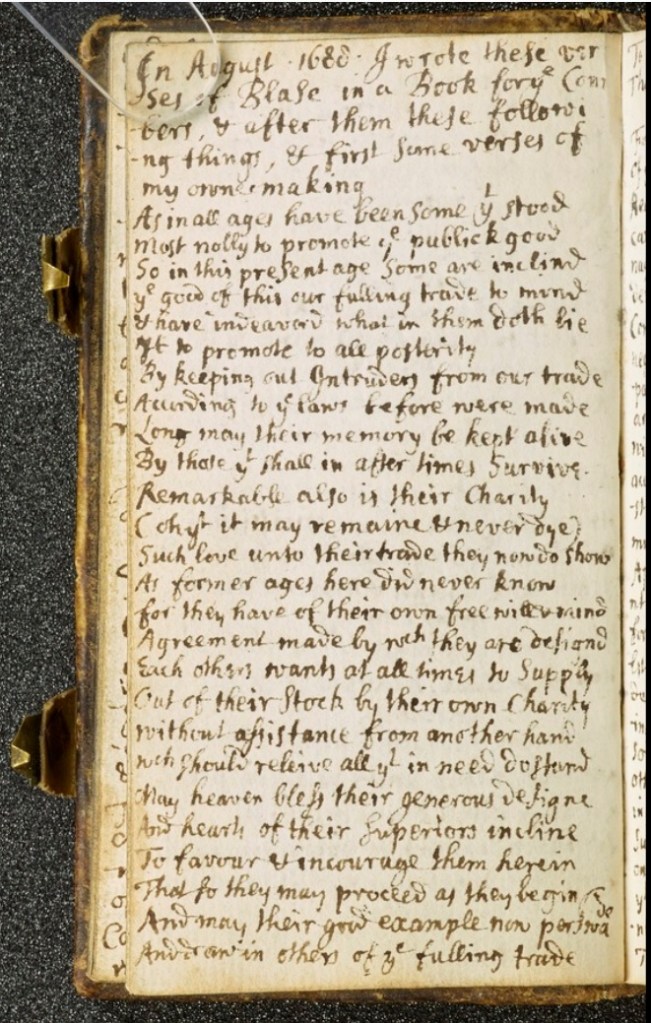 In August 1680 I wrote these ver
ses of Blase in a Book for yᵉ Com
bers, & after them these followi
-ng things, & first some verses of
my owne making
As in all ages have been some yᵗ stood
Most nobly to promote yᵉ publick good
So in this present age some are inclind
yᵉ good of this our fulling trade to mind
& have indeavord what in them doth lie
It to promote to all posterity
By keeping out Intruders from our trade
According to yᵉ laws before were made
Long may their memory be kept alive
By those yᵗ shall in after times Survive.
Remarkable also is their Charity
(oh yᵗ it may remaine & never dye)
Such love unto their trade they now do show
As former ages here did never know
for they have of their own free will & mind
Agreement made by wch they are designd
Each others wants at all times to Supply
Out of their Stock by their own Charity
without assistance from another hand
wch should releive all yᵗ in need do stand
May heaven bless their generous designe
And hearts of their Superiors incline
To favour & incourage them herein
That so they may proceed as they begin
And may their good example now perswade
And draw in others of yᵉ fulling trade